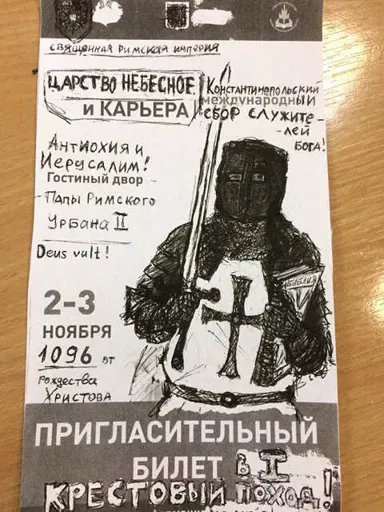 Священная Римская империя
Царство Небесное
и КАРЬЕРА
Константинопольский
международный
сбор служите-
лей
Бога!
Антиохия и
Иерусалим!
Гостиный двор -
- Папы Римского
Урбана II
Deus vult!
2-3
НОЯБРЯ
1096 от
Рождества
Христова
Библия
ПРИГЛАСИТЕЛЬНЫЙ
БИЛЕТ в I
Крестовый поход!